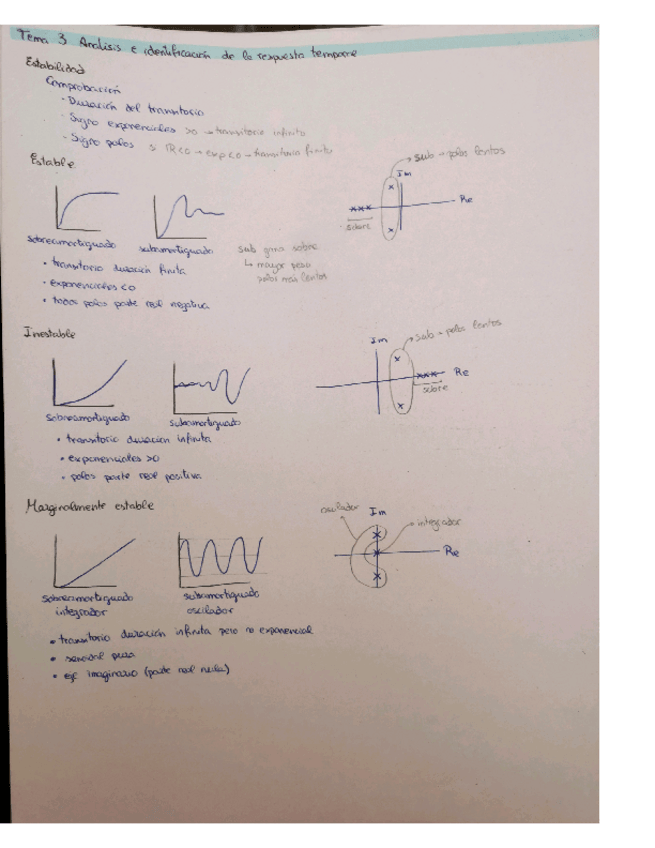 Tema 3 Análisis e identificación de la respuesta temporal
Estabilidad
Comprobación
· Duración del transitorio
· Signo exponenciales >0 → transitorio infinito
· Signo polos si Re<0 → exp<0 → transitorio finito
Estable
sub → polos lentos
Im
Re
sobre
sobreamortiguado
subamortiguado
sub gana sobre
↳ mayor peso
polos más lentos
• transitorio duración finita
• exponenciales <0
• todos polos parte real negativa
Inestable
sub → polos lentos
Im
Re
sobre
sobreamortiguado
subamortiguado
• transitorio duración infinita
• exponenciales >0
• polos parte real positiva
Marginalmente estable
oscilador
Im
integrador
Re
sobreamortiguado
integrador
subamortiguado
oscilador
• transitorio duración infinita pero no exponencial
• senoidal pura
• eje imaginario (parte real nula)